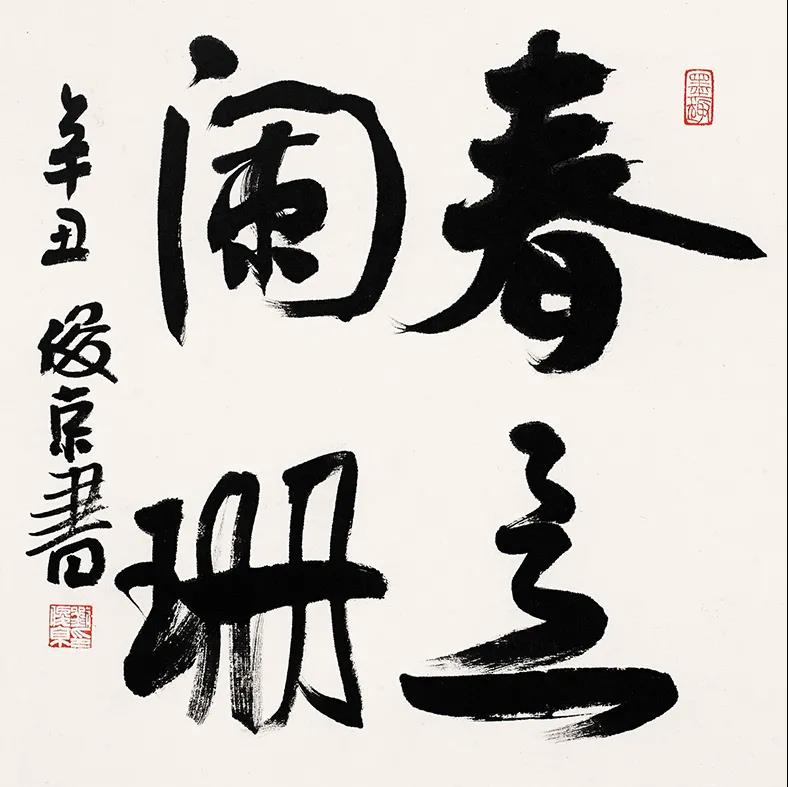 春意
阑珊
辛丑 俊京書